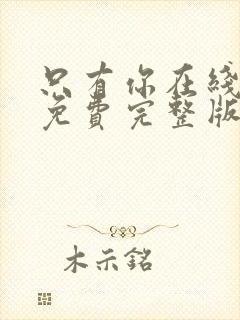 只有你在綫
免費完整版
木示銘